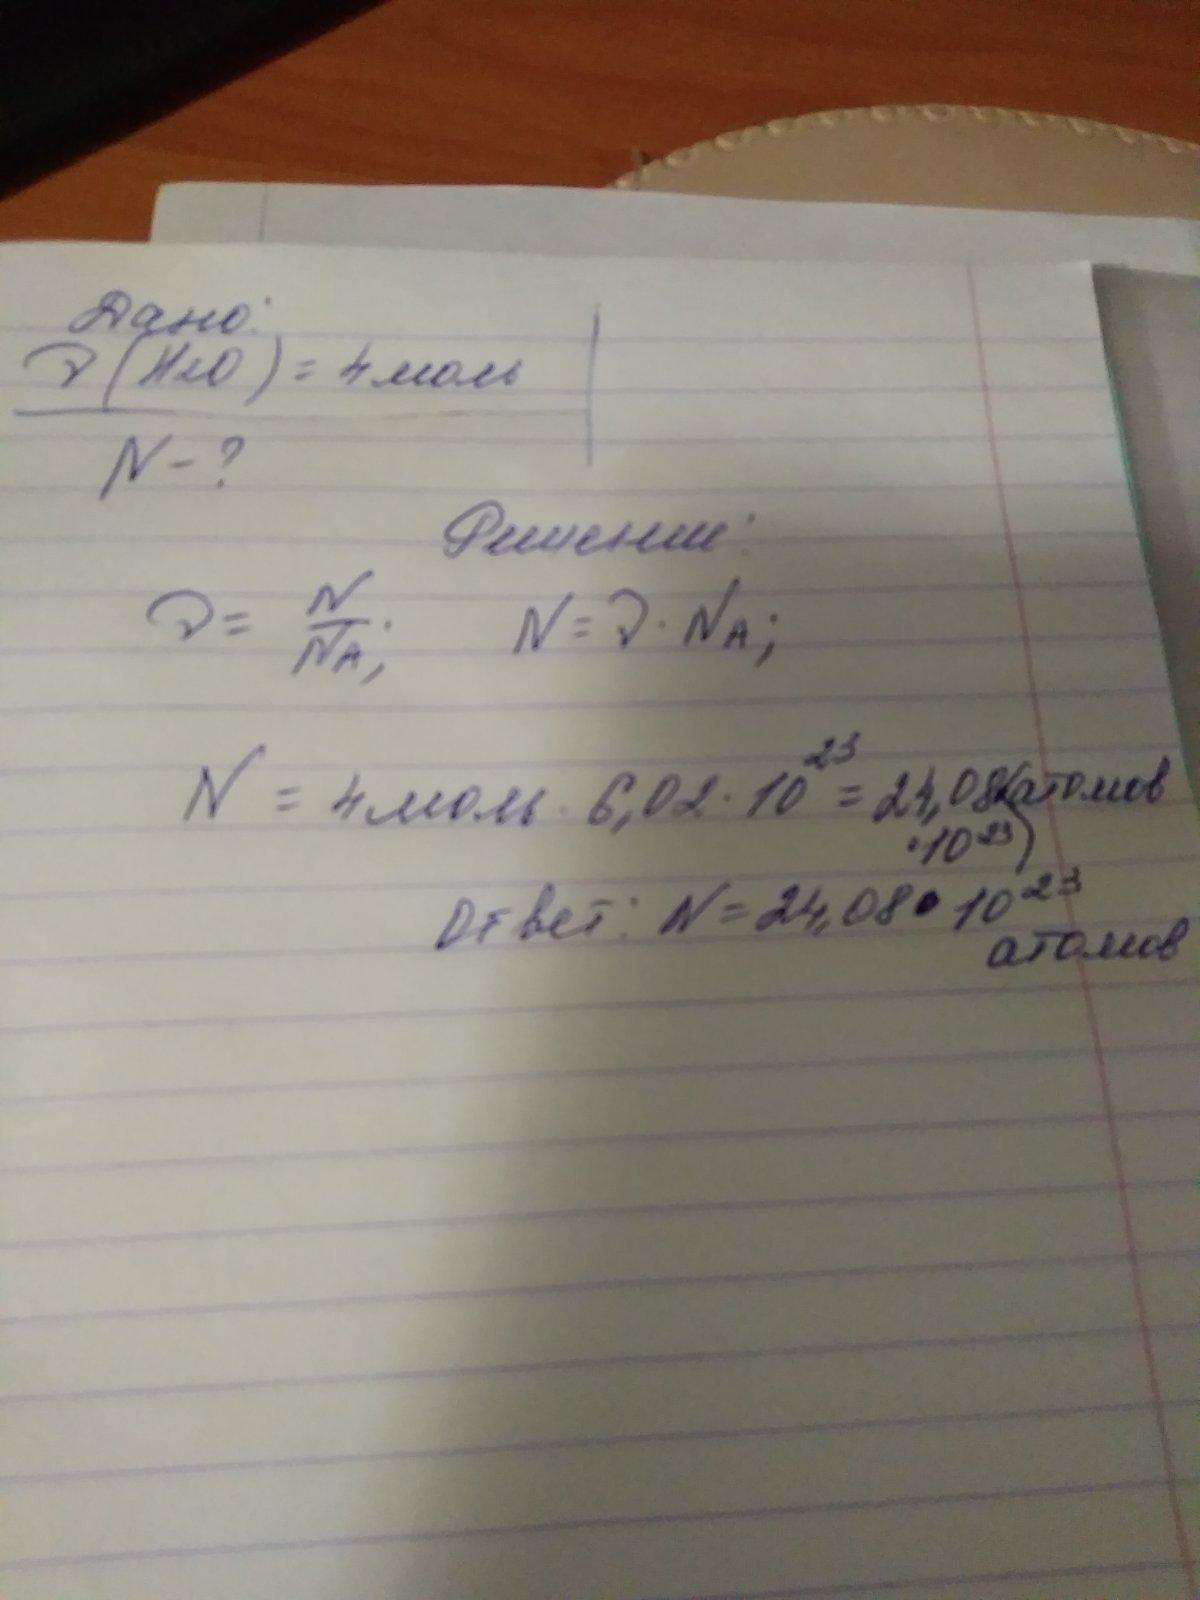 Дано:
ν (H₂O) = 4 моль
N - ?
Решение:
ν = N/Nₐ; N = ν · Nₐ;
N = 4 моль · 6,02 · 10²³ = 24,08 (атомов
· 10²³)
Ответ: N = 24,08 • 10²³
атомов